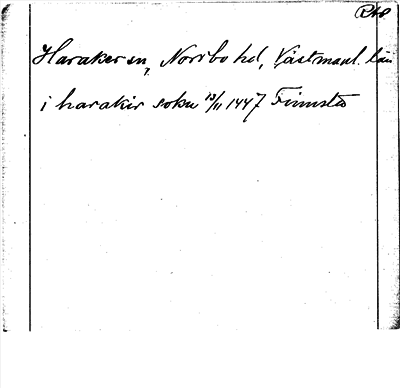 RAP
Haraker sn, Norrbo hd, Västmanl. län
i harakir sokn 13/11 1447 Finnsta